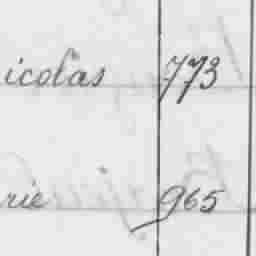 icolas 773
rie 965